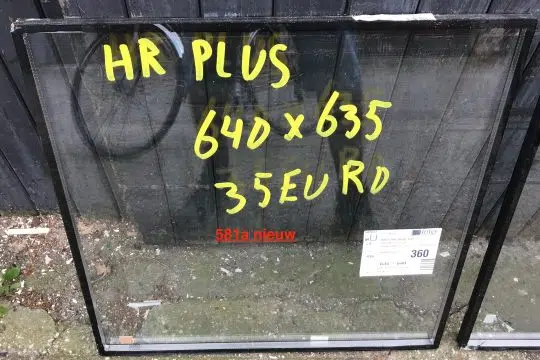 HR PLUS
640 x 635
35 EURO
581a nieuw
360